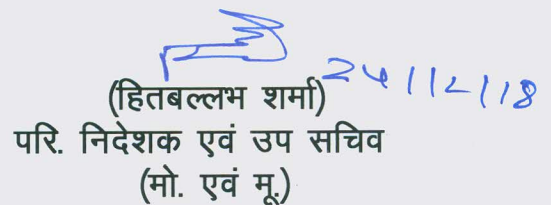 24/12/18
(हितबल्लभ शर्मा)
परि. निदेशक एवं उप सचिव
(मो. एवं मू.)